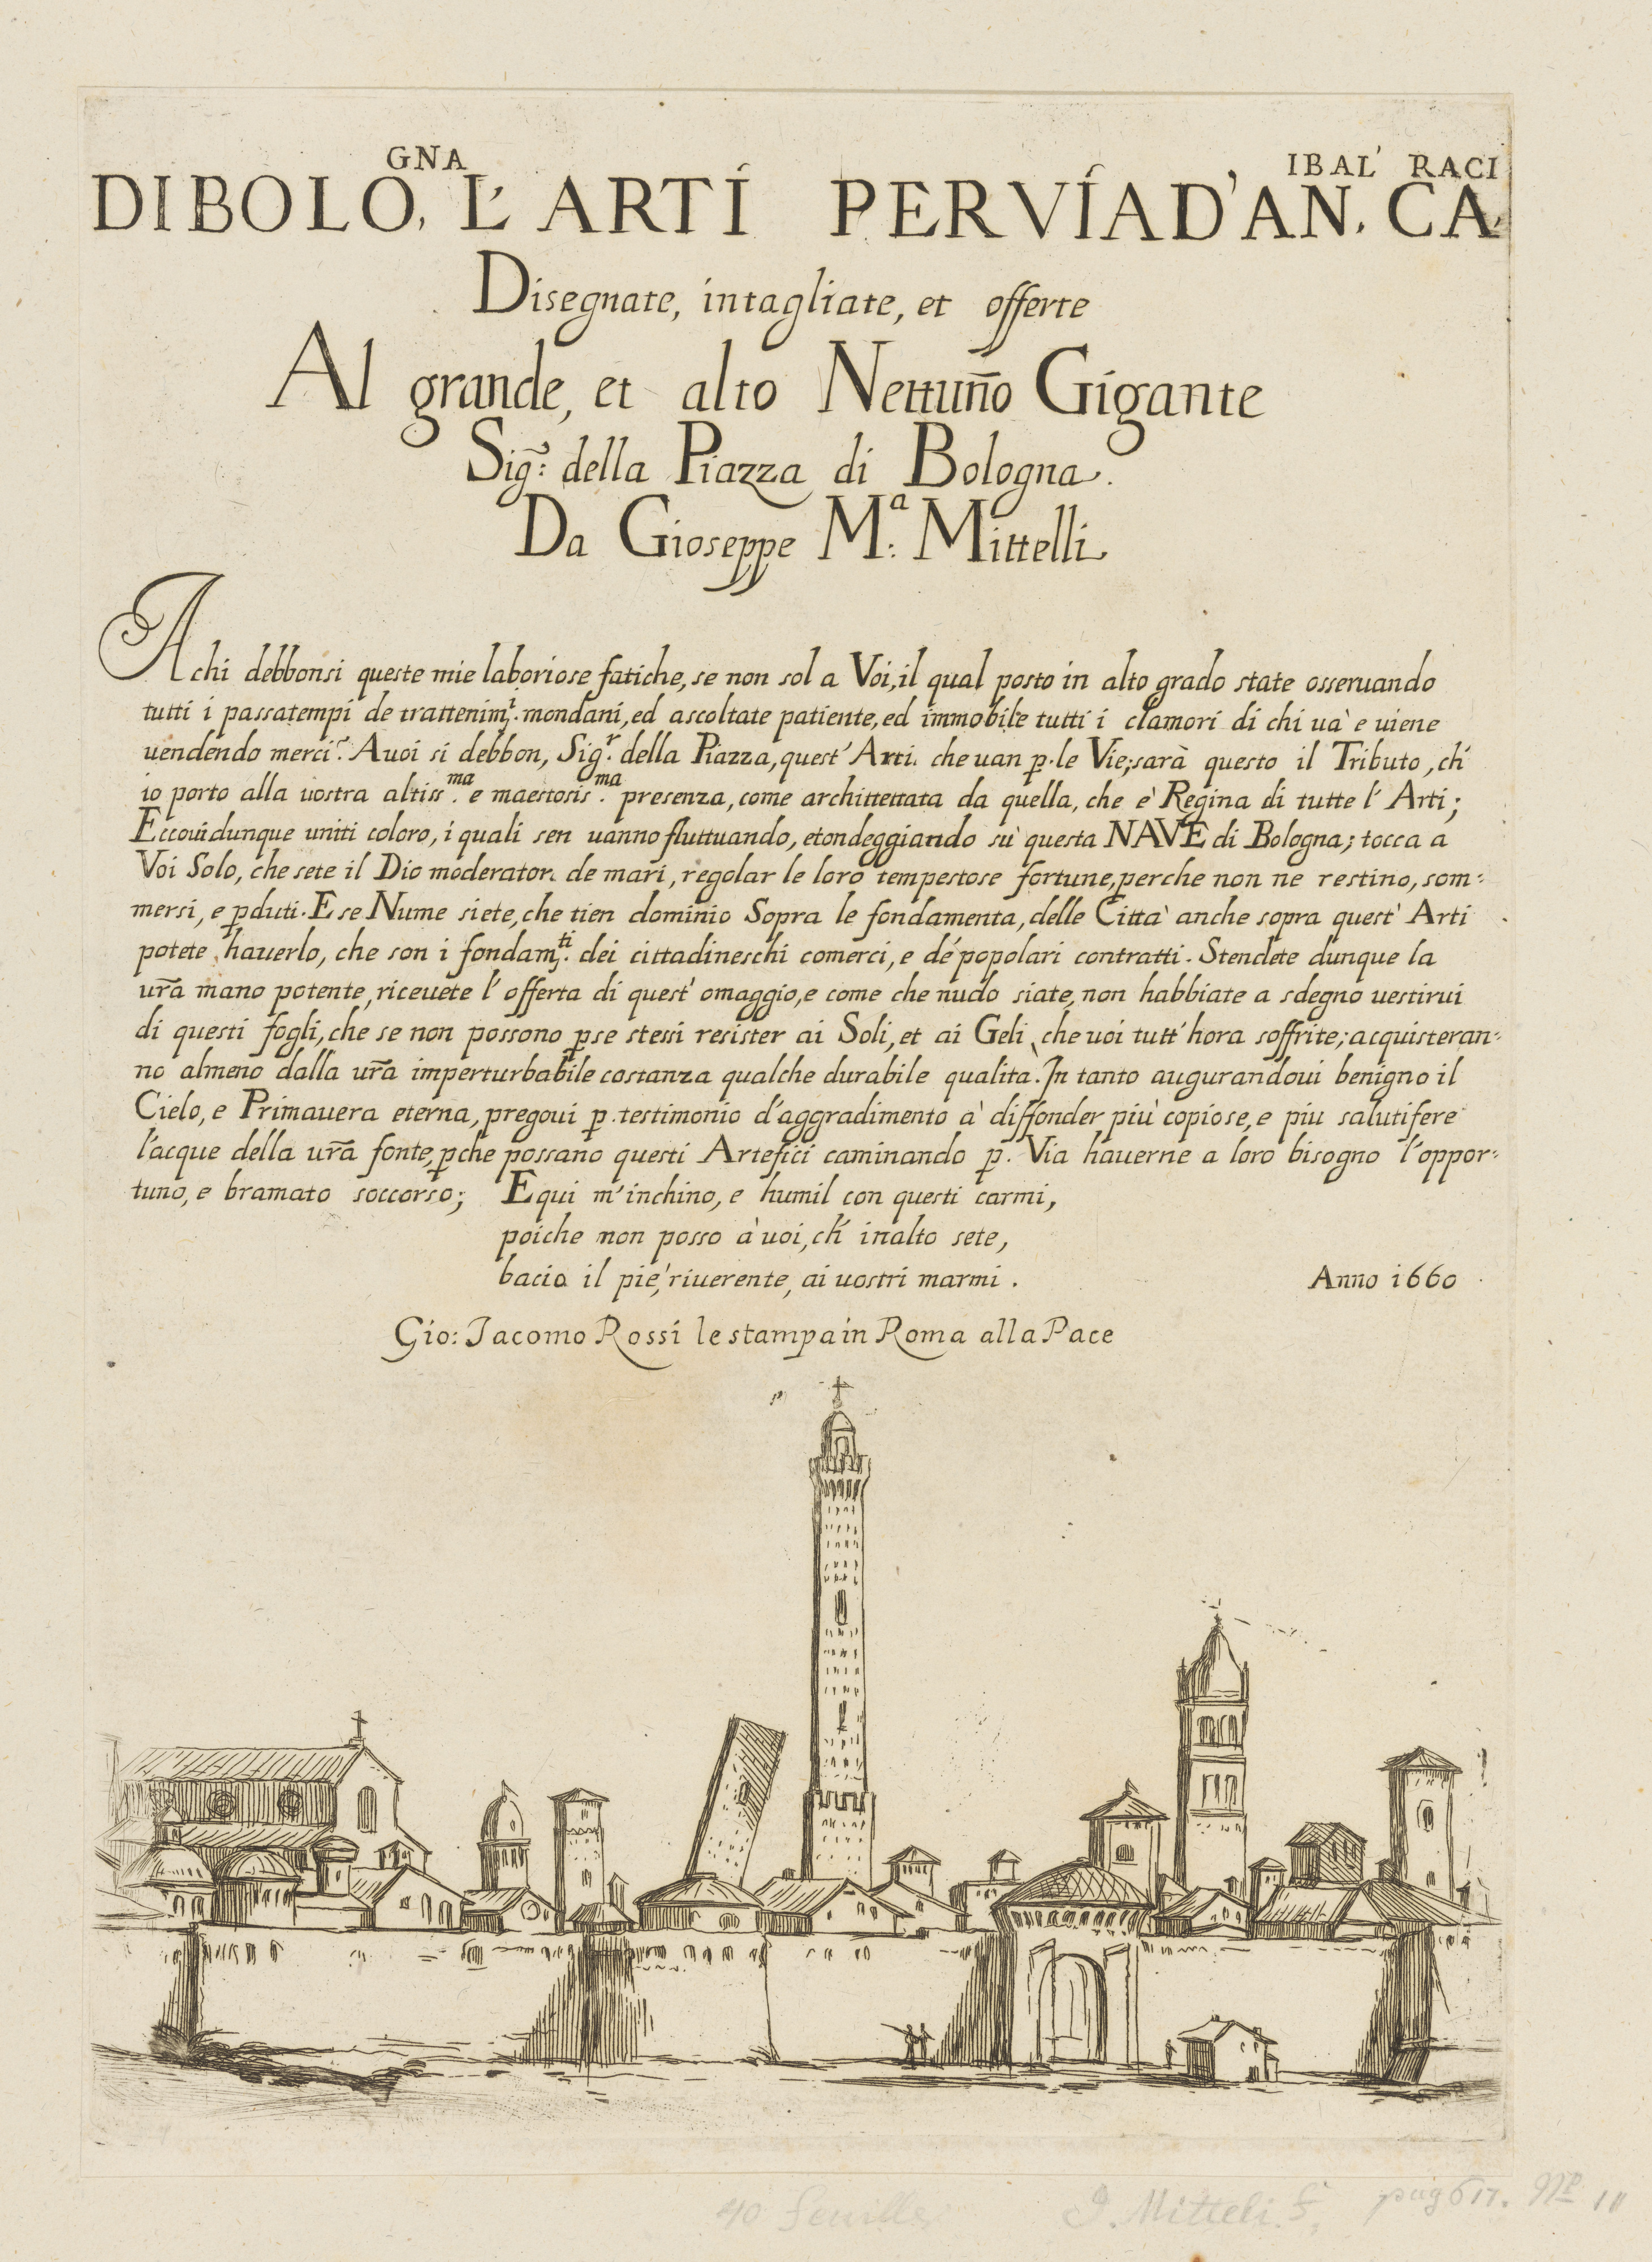 GNA IBAL' RACI
DI BOLO, L' ARTÍ PER VÍA D'AN, CA,
Disegnate, intagliate, et offerte
Al grande, et alto Nettuño Gigante
Sig̃: della Piazza di Bologna.
Da Gioseppe Mª: Mittelli
A chi debbonsi queste mie laboriose fatiche, se non sol a Voi, il qual posto in alto grado state osseruando
tutti i passatempi de trattenimͭⁱ. mondani, ed ascoltate patiente, ed immobile tutti i clamori di chi uà e uiene
uendendo merci? A uoi si debbon, Sigʳ. della Piazza, quest' Arti che uan p. le Vie; sarà questo il Tributo, ch'
io porto alla uostra altissᵐᵃ. e maestosisᵐᵃ. presenza, come archittettata da quella, che è Regina di tutte l' Arti;
Eccoui dunque uniti coloro, i quali sen uanno fluttuando, et ondeggiando sù questa NAVE di Bologna; tocca a
Voi Solo, che sete il Dio moderator de mari, regolar le loro tempestose fortune, perche non ne restino, som:
mersi, e pduti. E se Nume siete, che tien dominio Sopra le fondamenta, delle Città anche sopra quest' Arti
potete hauerlo, che son i fondamᵗⁱ. dei cittadineschi comerci, e dé popolari contratti. Stendete dunque la
ur̃a mano potente, riceuete l' offerta di quest' omaggio, e come che nudo siate, non habbiate a sdegno uestirui
di questi fogli, che se non possono p se stessi resister ai Soli, et ai Geli, che uoi tutt' hora soffrite; acquisteran-
no almeno dalla ur̃a imperturbabile costanza qualche durabile qualità. In tanto augurandoui benigno il
Cielo, e Primauera eterna, pregoui p. testimonio d'aggradimento à diffonder più copiose, e piu salutifere
l'acque della ur̃a fonte, pche possano questi Artefici caminando p. Via hauerne a loro bisogno l'oppor-
tuno, e bramato soccorso; E qui m'inchino, e humil con questi carmi,
poiche non posso à uoi, ch' in alto sete,
bacio il piè, riuerente, ai uostri marmi. Anno 1660
Gio: Jacomo Rossi le stampa in Roma alla Pace
40 feuilles G. Mitteli f. pag 617. Nº 111